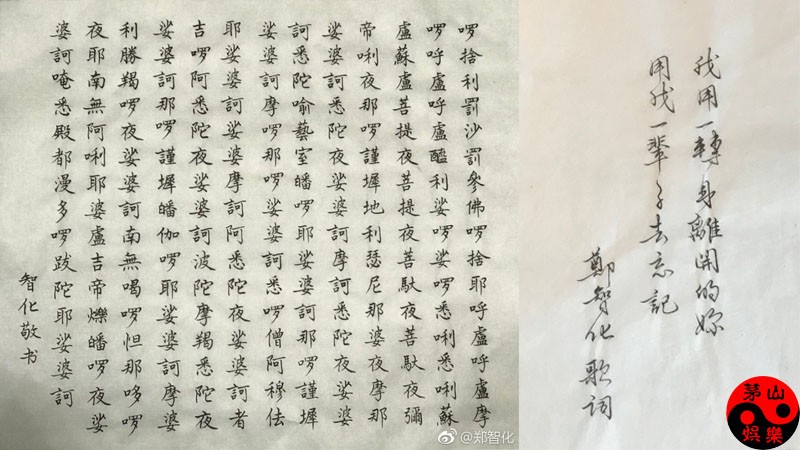 囉捨利罰沙罰參佛囉捨耶呼盧呼盧摩
囉呼盧呼盧醯利娑囉娑囉悉唎悉唎蘇
盧蘇盧菩提夜菩提夜菩馱夜菩馱夜彌
帝唎夜那囉謹墀地利瑟尼那婆夜摩那
娑婆訶悉陀夜娑婆訶摩訶悉陀夜娑婆
訶悉陀喻藝室皤囉耶娑婆訶那囉謹墀
娑婆訶摩囉那囉娑婆訶悉囉僧阿穆佉
耶娑婆訶娑婆摩訶阿悉陀夜娑婆訶者
吉囉阿悉陀夜娑婆訶波陀摩羯悉陀夜
娑婆訶那囉謹墀皤伽囉耶娑婆訶摩婆
利勝羯囉夜娑婆訶南無喝囉怛那哆囉
夜耶南無阿唎耶婆盧吉帝爍皤囉夜娑
婆訶唵悉殿都漫多囉跋陀耶娑婆訶
智化敬书
@郑智化
我用一轉身離開的妳
用我一輩子去忘記
鄭智化歌詞
茅山
娛樂